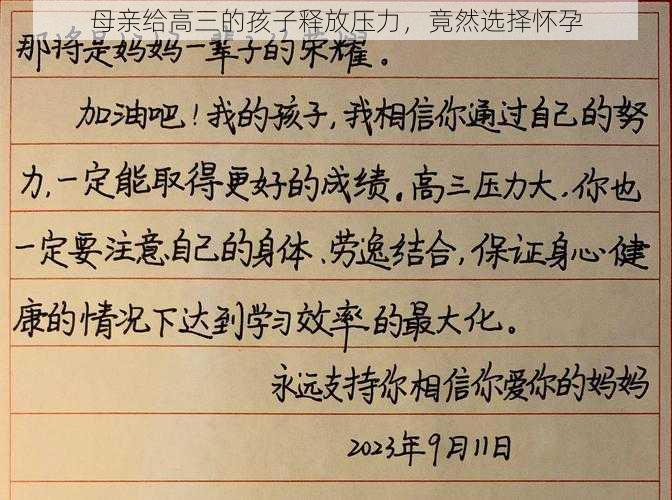 母亲给高三的孩子释放压力，竟然选择怀孕
那将是妈妈一辈子的荣耀。
加油吧！我的孩子，我相信你通过自己的努
力，一定能取得更好的成绩。高三压力大，你也
一定要注意自己的身体、劳逸结合，保证身心健
康的情况下达到学习效率的最大化。
永远支持你相信你爱你的妈妈
2023年9月11日